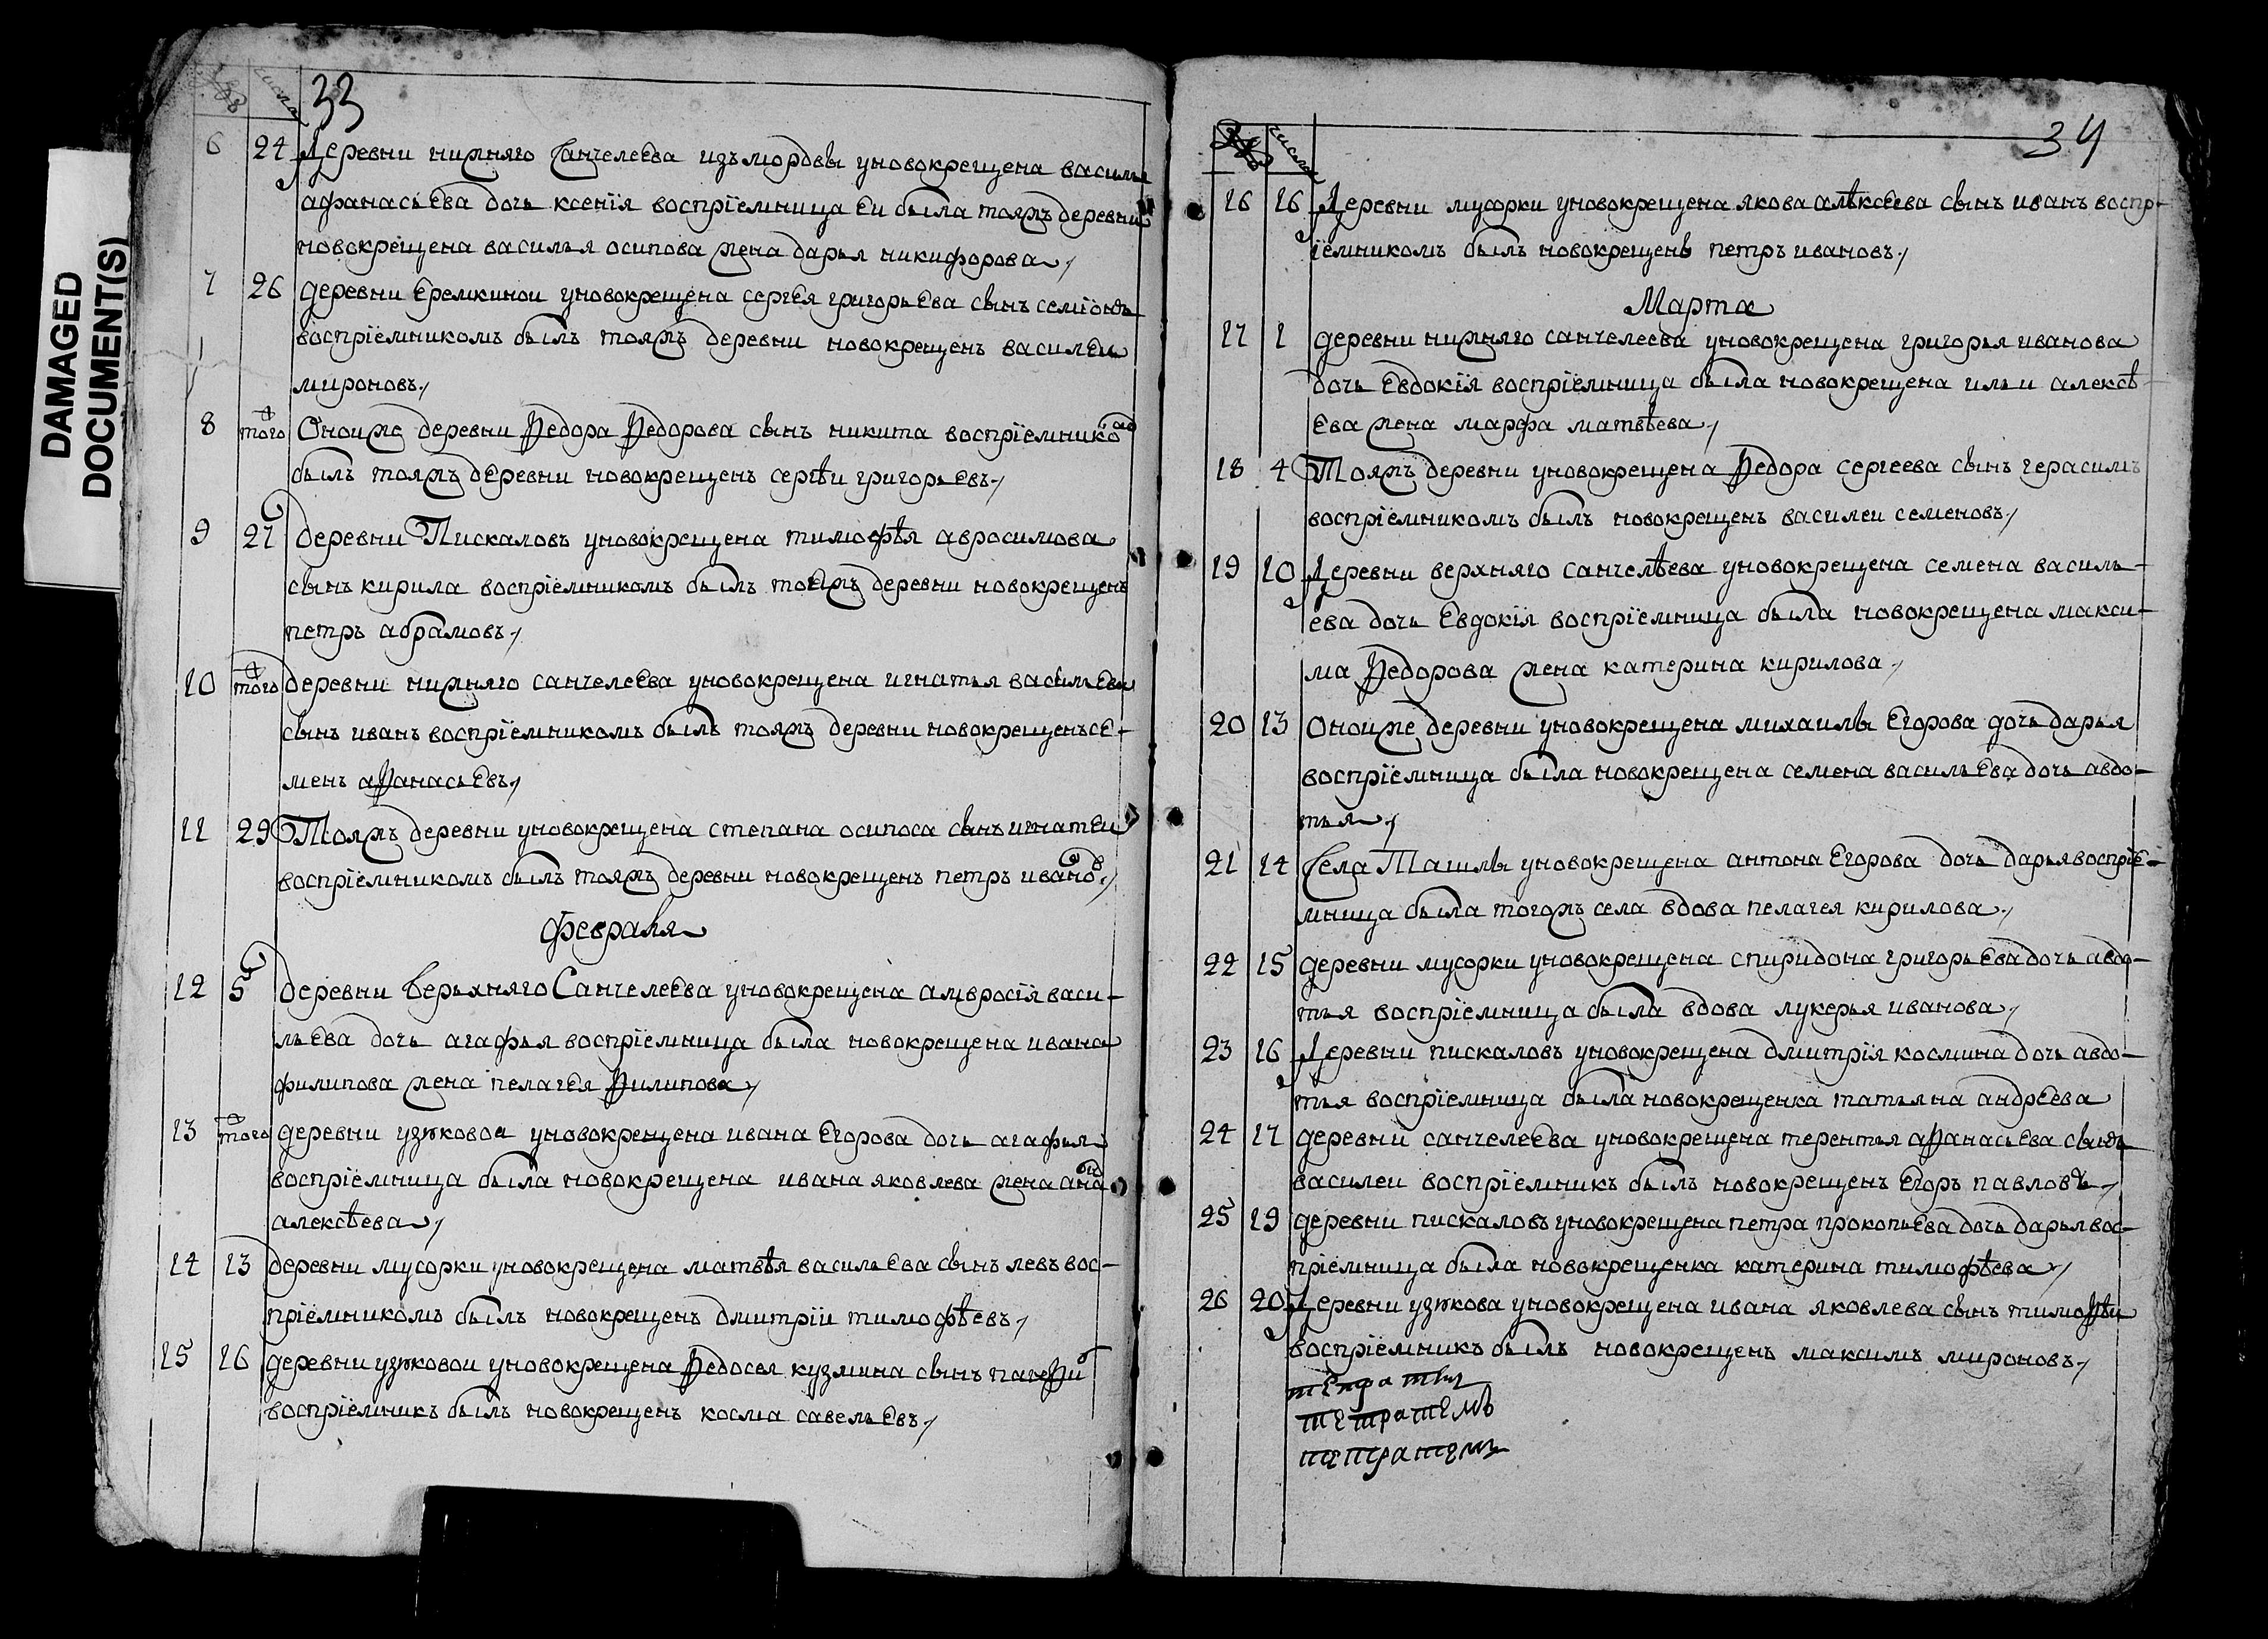 DAMAGED
DOCUMENT(S)
числа 33
6 24 Деревни нижняго Санчелеева изъ мордвы уновокрещена василья
афанасьева дочь ксенїя воспрїемница еи была тояжъ деревни
новокрещена василья осипова жена дарья никифорова
7 26 деревни Еремкинои уновокрещена сергея григорьева сынъ семіонъ
воспрїемникомъ былъ тояжъ деревни новокрещенъ василеи
мироновъ
8 того Оноиже деревни Федора Федорова сынъ никита воспрїемнико
былъ тояжъ деревни новокрещенъ сергѣи григорьевъ
9 27 деревни Пискаловъ уновокрещена тимофѣя авросимова
сынъ кирила воспрїемникомъ былъ тоеяжъ деревни новокрещенъ
петръ абрамовъ
10 того деревни нижняго санчелеева уновокрещена игнатья васильева
сынъ иванъ воспрїемникомъ былъ тояжъ деревни новокрещенъ се-
менъ афанасьевъ
11 29 Тояжъ деревни уновокрещена степана осипоса сынъ игнатеи
воспрїемникомъ былъ тояжъ деревни новокрещенъ петръ ивановъ
Февраля
12 5 деревни верьхняго Санчелеева уновокрещена амвросїя васи-
льева дочь агафья воспрїемница была новокрещена ивана
филипова жена пелагея Филипова
13 того деревни узюковои уновокрещена ивана Егорова дочь агафья
воспрїемница была новокрещена ивана яковлева жена анна
алексѣева
14 13 деревни мусорки уновокрещена матвѣя васильева сынъ левъ вос-
прїемникомъ былъ новокрещенъ дмитріи тимофѣевъ
15 16 деревни узюковои уновокрещена Федосея кузмина сынъ
воспрїемникъ былъ новокрещенъ косма савельевъ
числа 34
16 16 Деревни мусорки уновокрещена якова алѣксеева сынъ иванъ воспр-
їемникомъ былъ новокрещенъ петръ ивановъ
Марта
17 1 деревни нижняго санчелеева уновокрещена григорья иванова
дочь Евдокїя воспрїемница была новокрещена ильи алексѣ-
ева жена марфа матвѣева
18 4 Тояжъ деревни уновокрещена Федора сергеева сынъ герасимъ
воспрїемникомъ былъ новокрещенъ василеи семеновъ
19 10 Деревни верхняго санчелѣева уновокрещена семена василь-
ева дочь Евдокїя воспрїемница была новокрещена макси-
ма Федорова жена катерина кирилова
20 13 Оноиже деревни уновокрещена михаилы Егорова дочь дарья
воспрїемница была новокрещена семена васильева дочь авдо-
тья
21 14 Села Ташлы уновокрещена антона Егорова дочь дарья воспрїе-
мница была тогожъ села вдова пелагея кирилова
22 15 деревни мусорки уновокрещена спиридона григорьева дочь авдо-
тья воспрїемница была вдова лукерья иванова
23 16 Деревни пискаловъ уновокрещена дмитрїя космина дочь авдо-
тья воспрїемница была новокрещенка татьяна андреева
24 17 деревни санчелеева уновокрещена терентья афанасьева сынъ
василеи воспрїемникъ былъ новокрещенъ Егоръ павловъ
25 19 деревни пискаловъ уновокрещена петра прокопьева дочь дарья вос-
прїемница была новокрещенка катерина тимофѣева
26 20 Деревни узюкова уновокрещена ивана яковлева сынъ тимофѣи
воспрїемникъ былъ новокрещенъ максимъ мироновъ